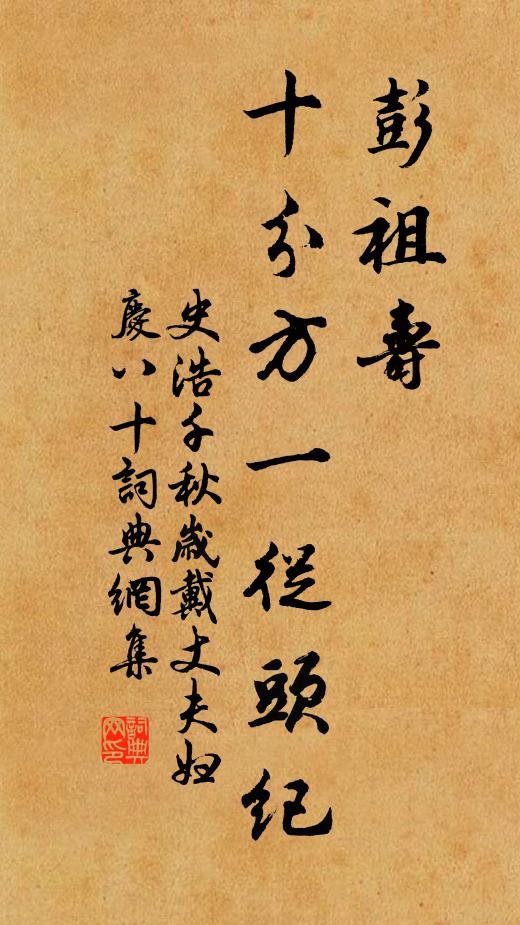 彭祖壽
十分方一從頭紀
史浩千秋歲戴丈夫妇
慶八十詞典網集
詞典
网印